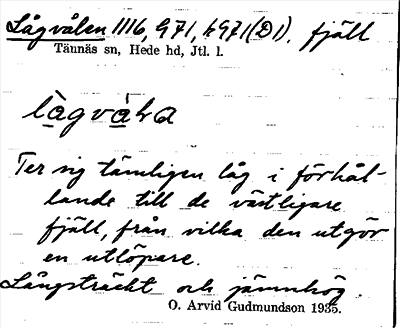 Lågvålen 1116, 971, h971(D1). fjäll
Tännäs sn, Hede hd, Jtl. l.
Ter sig tämligen låg i förhål-
lande till de västligare
fjäll, från vilka den utgör
en utlöpare.
Långsträckt och jämnhög
O. Arvid Gudmundson 1935.